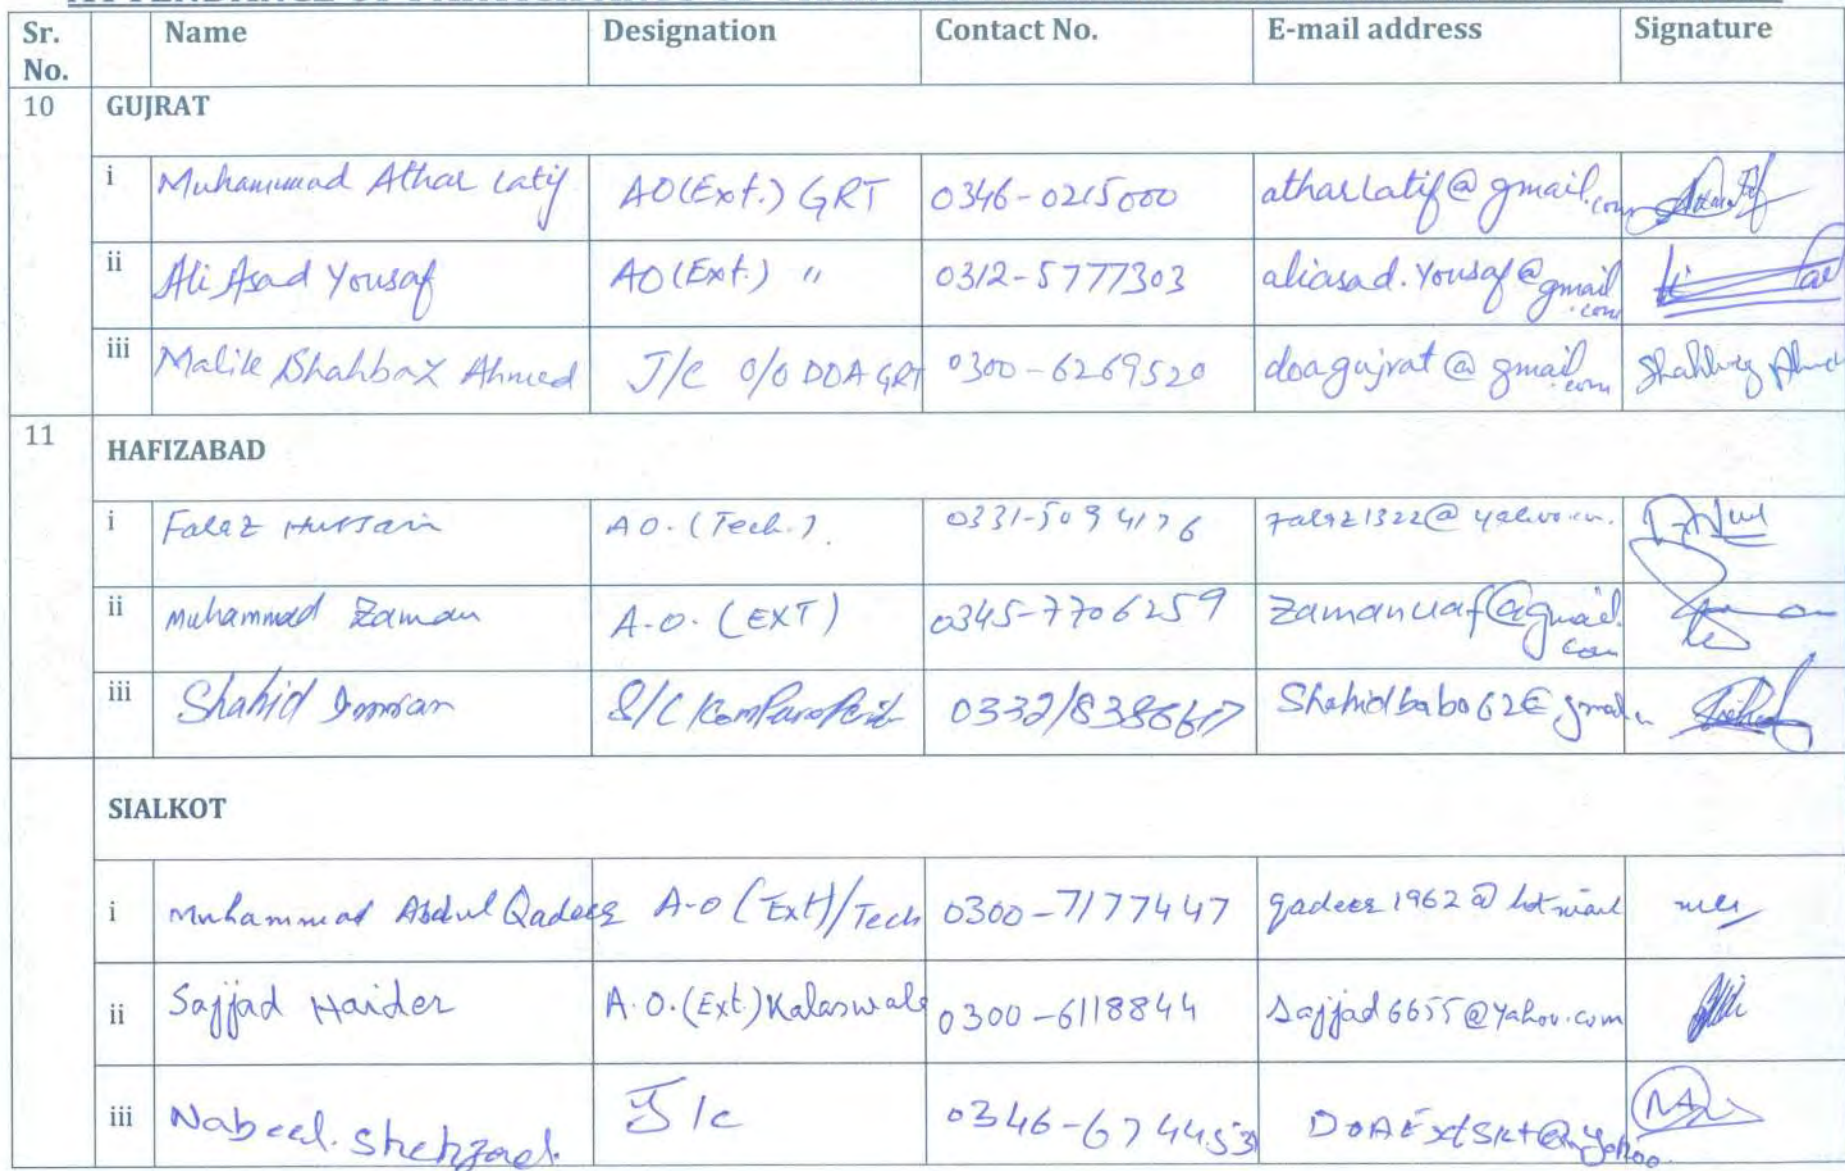 Sr. No. Name Designation Contact No. E-mail address Signature
10 GUJRAT
i Muhammad Athar Latif AO(Ext.) GRT 0346-0215000 atharlatif@gmail.com
ii Ali Asad Yousaf AO(Ext.) " 0312-5777303 aliasad.yousaf@gmail.com
iii Malik Shahbaz Ahmed J/C O/O DOA GRT 0300-6269520 doagujrat@gmail.com Shahbaz Ahmed
11 HAFIZABAD
i Faraz Hussain A O. (Tech.) 0331-5094176
ii Muhammad Zaman A.O. (EXT) 0345-7706259 zamanuaf@gmail.com
iii Shahid Imran S/C 0332/8386617 Shahidbabo62@
SIALKOT
i Muhammad Abdul Qadeer A-O (Ext)/Tech 0300-7177447 qadeer1962@hotmail
ii Sajjad Haider A.O.(Ext.) Kalaswala 0300-6118844 Sajjad6655@yahoo.com
iii Nabeel. Shehzad. J/C 0346-6744531 DOAExtSkt@yahoo